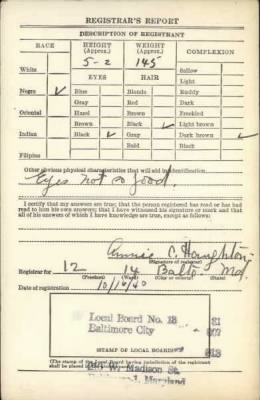 REGISTRAR'S REPORT
DESCRIPTION OF REGISTRANT
RACE HEIGHT (Approx.) WEIGHT (Approx.) COMPLEXION
5-2 145
White Sallow
EYES HAIR Light
Negro ✓ Blue Blonde Ruddy
Gray Red Dark
Oriental Hazel Brown Freckled
Brown Black ✓ Light brown
Indian Black ✓ Gray Dark brown ✓
Bald Black
Filipino
Other obvious physical characteristics that will aid in identification
Eyes not so good.
I certify that my answers are true; that the person registered has read or has had
read to him his own answers; that I have witnessed his signature or mark and that
all of his answers of which I have knowledge are true, except as follows:
Annie C. Houghton
(Signature of registrar)
Registrar for 12 14 Balto. Md.
(Precinct) (Ward) (City or county) (State)
Date of registration 10/16/40
Local Board No. 13
Baltimore City
STAMP OF LOCAL BOARD
(The stamp of the Local Board having jurisdiction of the registrant
shall be placed
W. Madison St.
Maryland